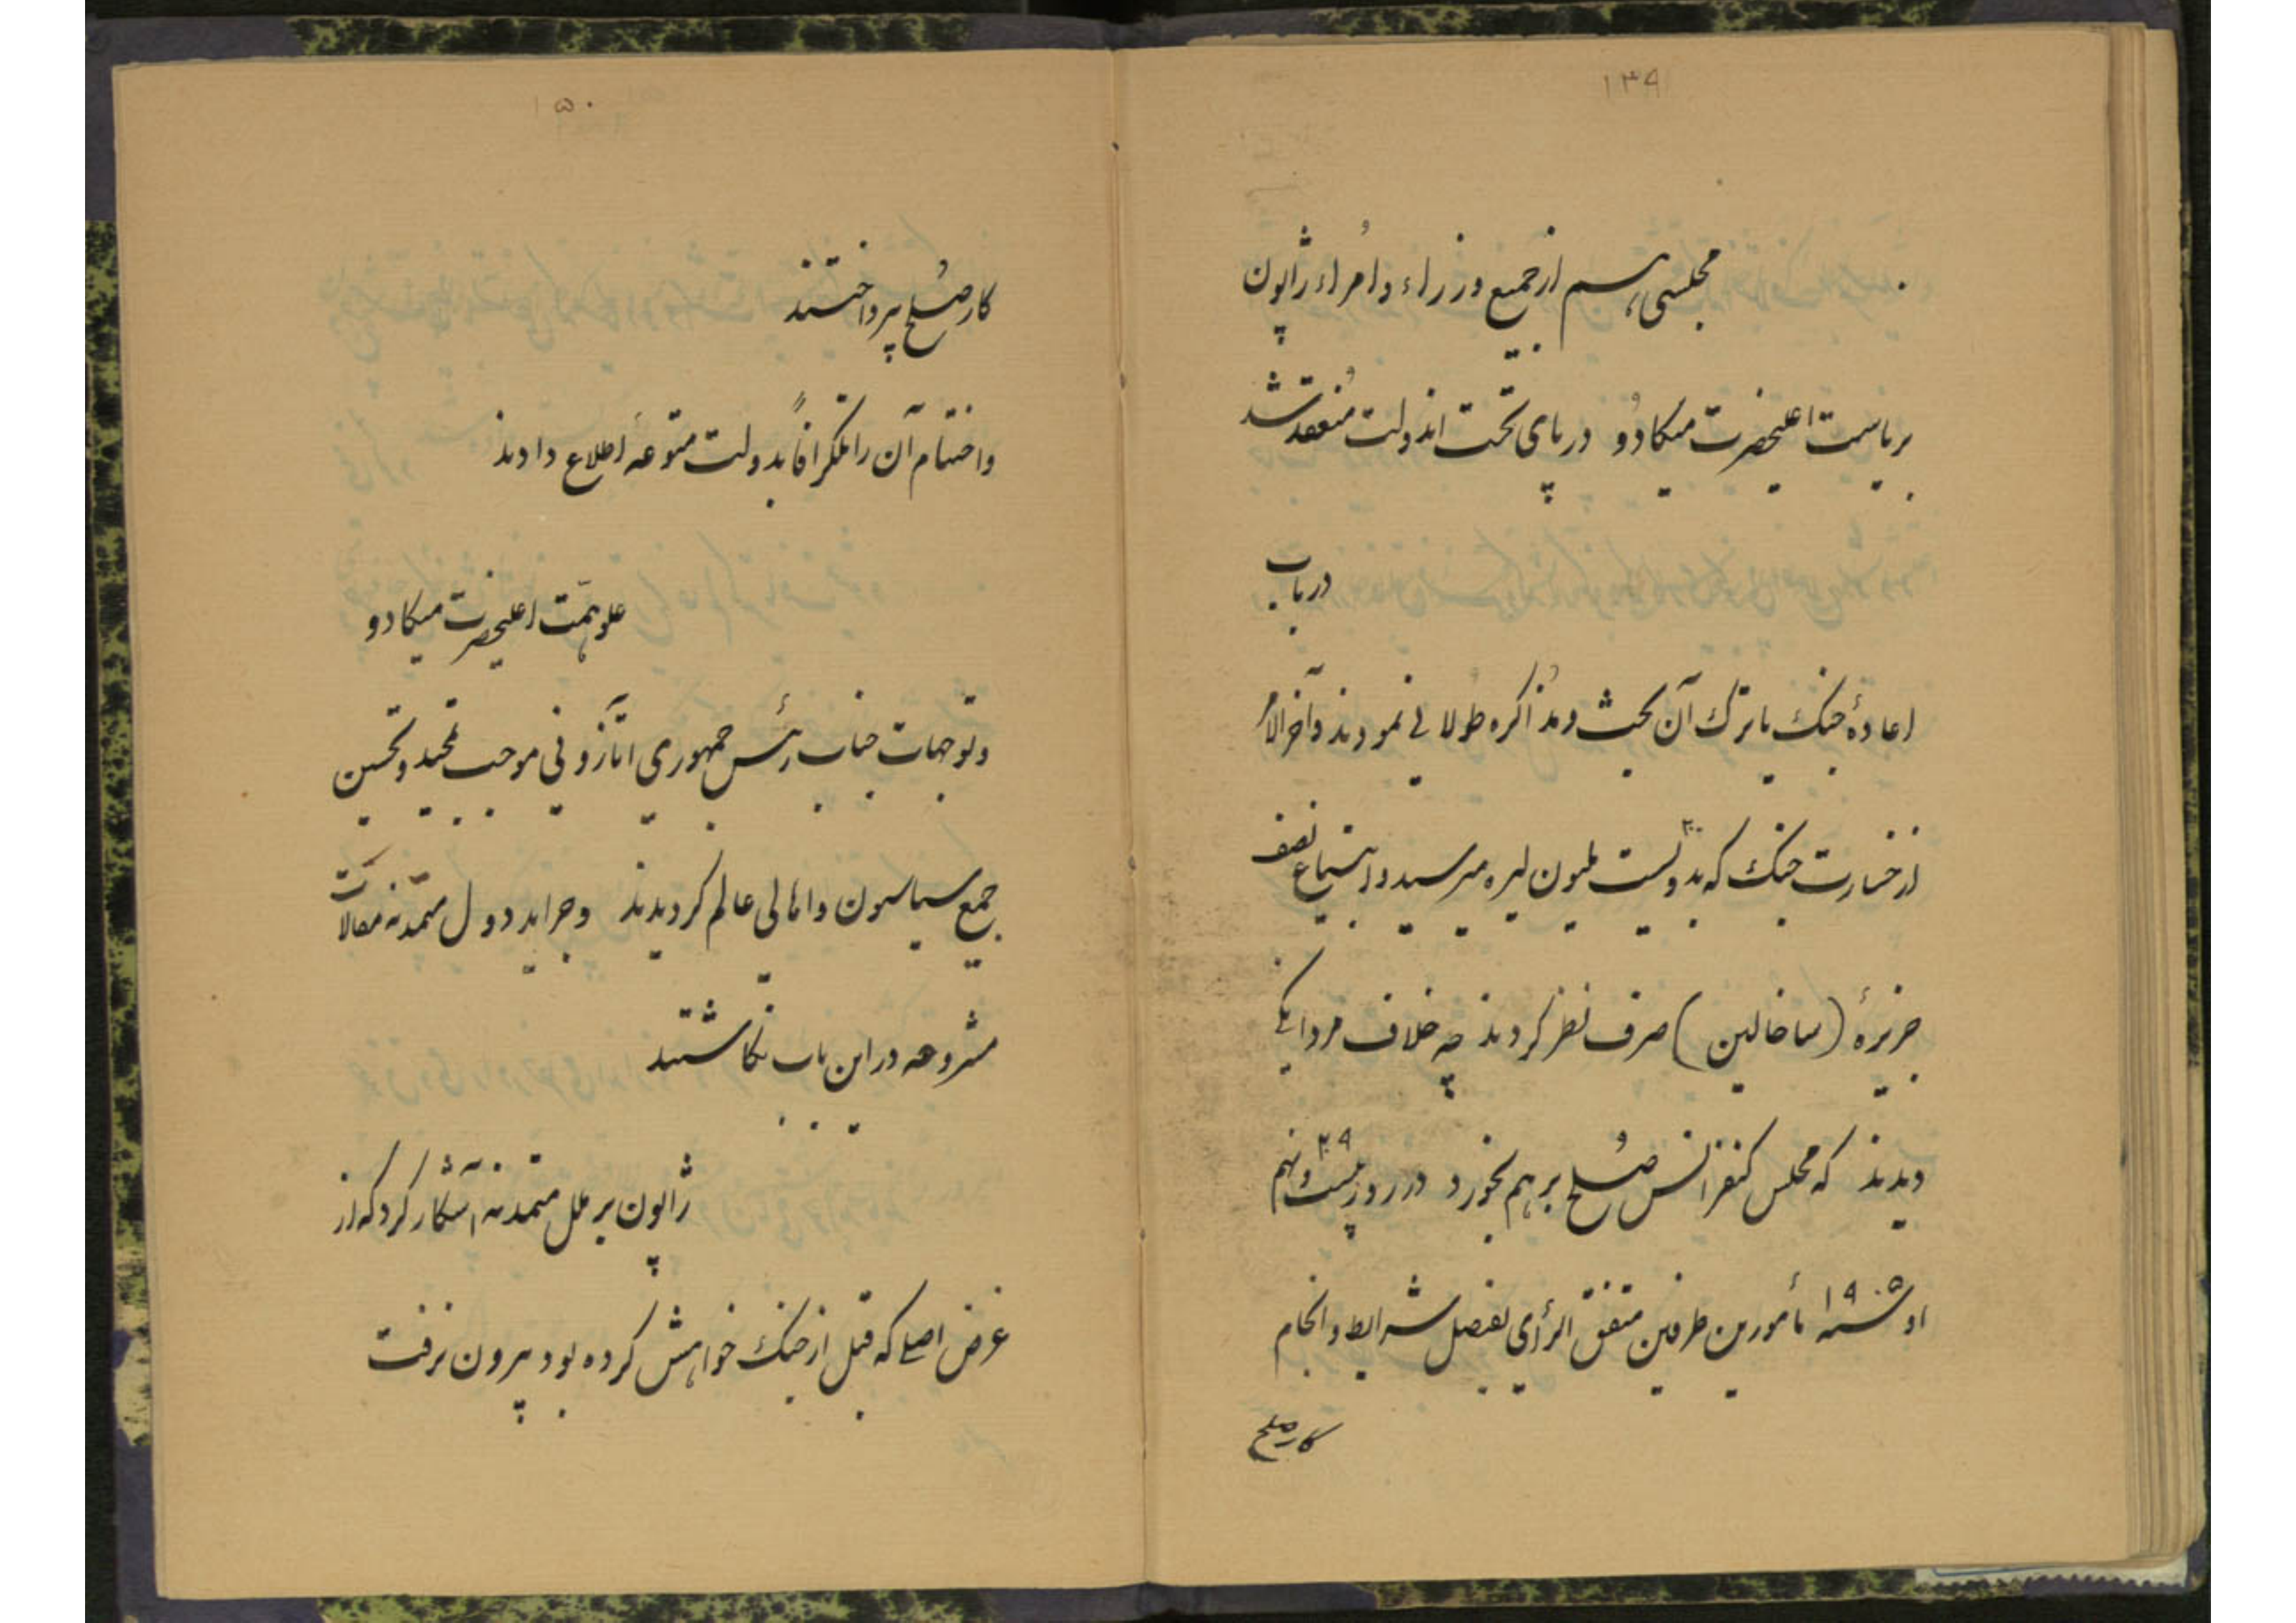 ۱۴۹
مجلسی برسم از جمیع وزراء و اُمراء ژاپون
بریاست اعلیحضرت میکادُو در پای تخت اندولت مُنعقد شد
در باب
اعادهٔ جنک یا ترک آن بحث و مُذاکره طولانی نمودند و آخرالامر
از خسارت جنک که بدویست ۲۰۰ ملیون لیره میرسید و ابتیاع نصف
جزیرهٔ (ساخالین) صرف نظر کردند چه خلاف مردانکی
دیدند که مجلس کنفرانس صُلح برهم بخورد در روز بیست و نهم ۲۹
اوت سنه ۱۹۰۵ مأمورین طرفین متفق الرأی بفیصل شرایط و انجام
کار صلح
۱۵۰
کار صُلح پرداختند
و اختتام آن را تلگرافاً بدولت متبوعه اطلاع دادند
علو همّت اعلیحضرت میکادو
و توجهات جناب رئیس جمهوری اتازونی موجب تمجید و تحسین
جمیع سیاسیون و اهالی عالم کردیدند و جراید دول متمدّنه مقالات
مشروحه در این باب نگاشتند
ژاپون بر ملل متمدنه آشکار کرد که از
غرض اصلی که قبل از جنک خواهش کرده بود بیرون نرفت